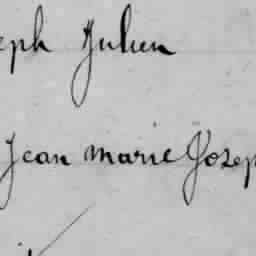 eph Julien
Jean marie Josep